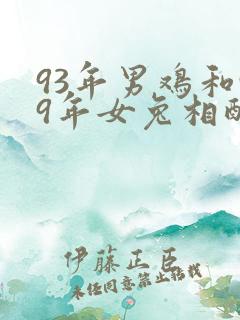 93年男鸡和
9年女兔相配
伊藤正臣
未经同意禁止转载